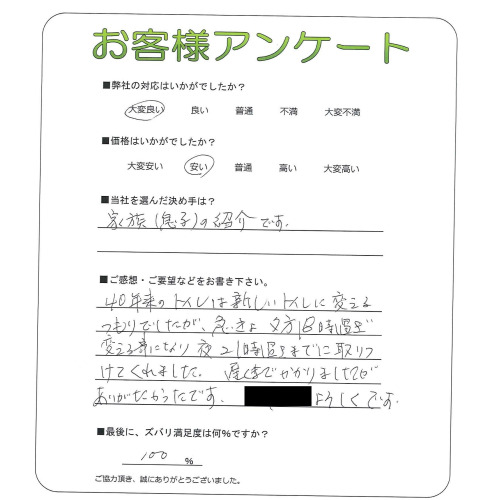 お客様アンケート
■弊社の対応はいかがでしたか？
大変良い 良い 普通 不満 大変不満
■価格はいかがでしたか？
大変安い 安い 普通 高い 大変高い
■当社を選んだ決め手は？
家族(息子)の紹介です.
■ご感想・ご要望などをお書き下さい。
40年来のトイレは新しいトイレに変える
つもりでしたが、急きょ夕方18時過ぎ
変える事になり夜21時過ぎまでに取りつ
けてくれました. 遅くまでかかりましたが
ありがたかったです. よろしくです.
■最後に、ズバリ満足度は何%ですか？
100 %
ご協力頂き、誠にありがとうございました。